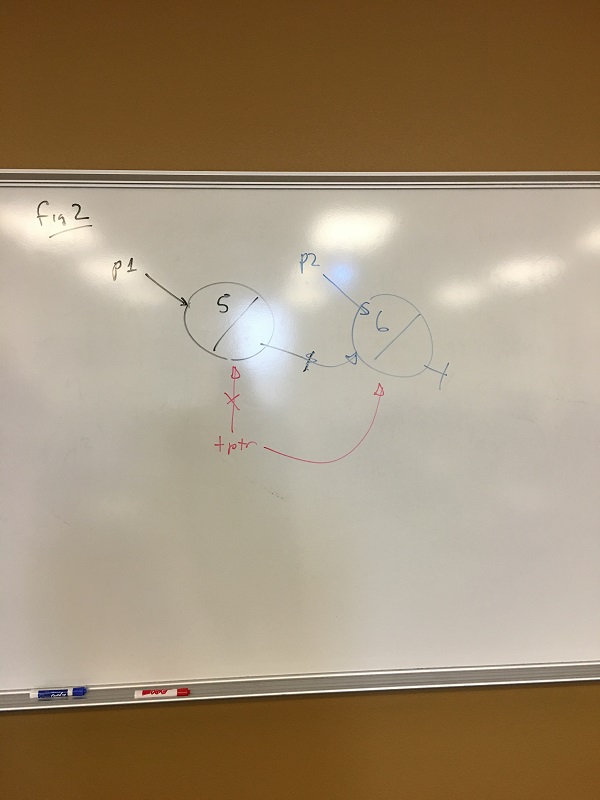 fig 2
p1
p2
5
6
tptr